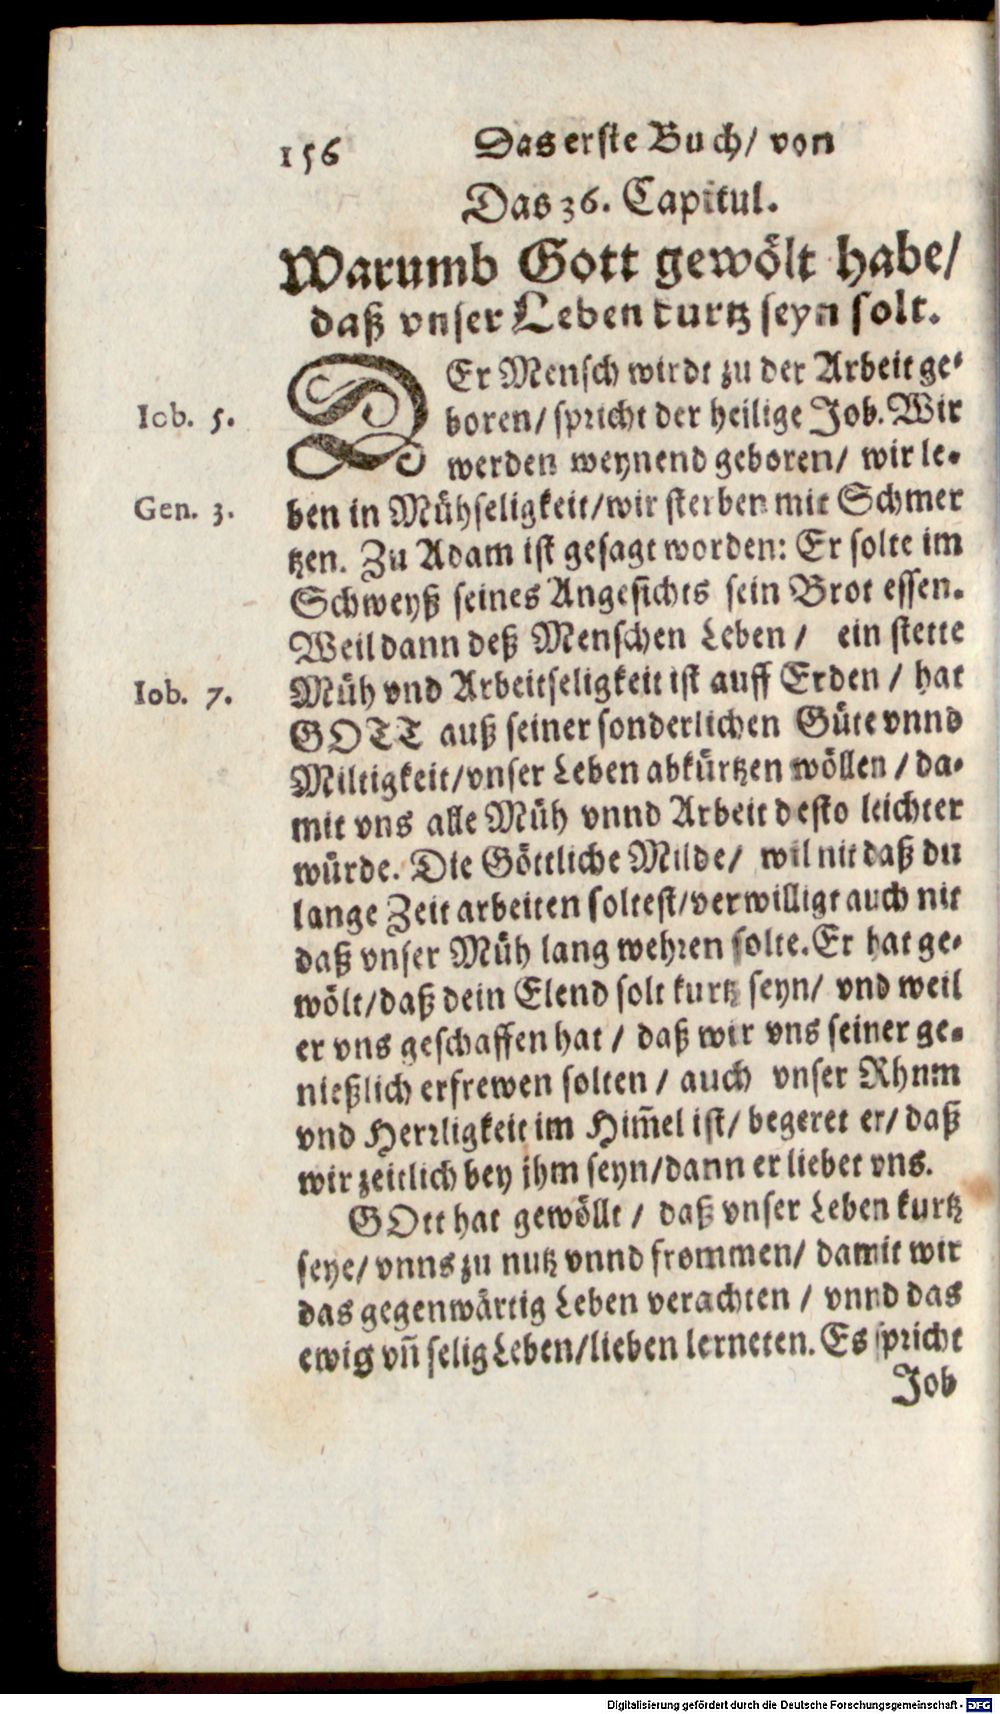 156 Das erste Buch/ von
Das 36. Capitul.
Warumb Gott gewölt habe/
daß vnser Leben kurtz seyn solt.
DEr Mensch wirdt zu der Arbeit ge-
Iob. 5. boren/ spricht der heilige Job. Wir
werden weynend geboren/ wir le-
Gen. 3. ben in Mühseligkeit/wir sterben mit Schmer
tzen. Zu Adam ist gesagt worden: Er solte im
Schweyß seines Angesichts sein Brot essen.
Weil dann deß Menschen Leben/ ein stette
Iob. 7. Müh vnd Arbeitseligkeit ist auff Erden/ hat
GOTT auß seiner sonderlichen Güte vnnd
Miltigkeit/vnser Leben abkürtzen wöllen/ da-
mit vns alle Müh vnnd Arbeit desto leichter
würde. Die Göttliche Milde/ wil nit daß du
lange Zeit arbeiten soltest/verwilligt auch nit
daß vnser Müh lang wehren solte. Er hat ge-
wölt/daß dein Elend solt kurtz seyn/ vnd weil
er vns geschaffen hat/ daß wir vns seiner ge-
nießlich erfrewen solten/ auch vnser Rhnm
vnd Herrligkeit im Him̄el ist/ begeret er/ daß
wir zeitlich bey jhm seyn/dann er liebet vns.
GOtt hat gewöllt/ daß vnser Leben kurtz
seye/ vnns zu nutz vnnd frommen/ damit wir
das gegenwärtig Leben verachten/ vnnd das
ewig vn̄ selig Leben/lieben lerneten. Es spricht
Job
Digitalisierung gefördert durch die Deutsche Forschungsgemeinschaft - DFG